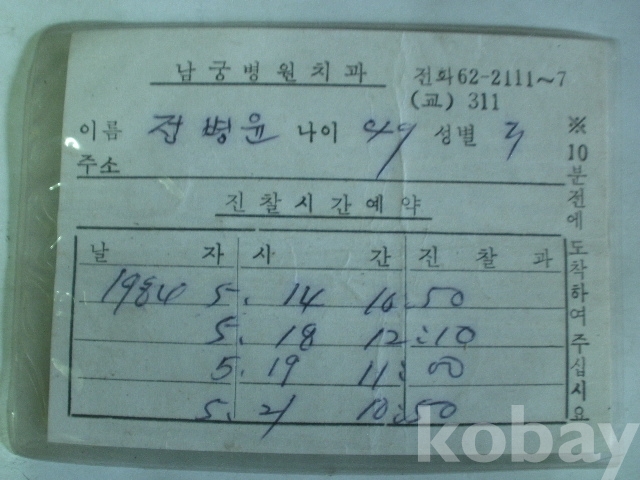 남궁병원치과 전화 62-2111~7
(교) 311
이름 병윤 나이 49 성별
주소
진찰시간예약
날 자 시 간 진 찰 과
1984 5. 14 10:50
5. 18 12:10
5. 19 11:00
5. 21 10:50
※10분전에 도착하여 주십시요
kobay